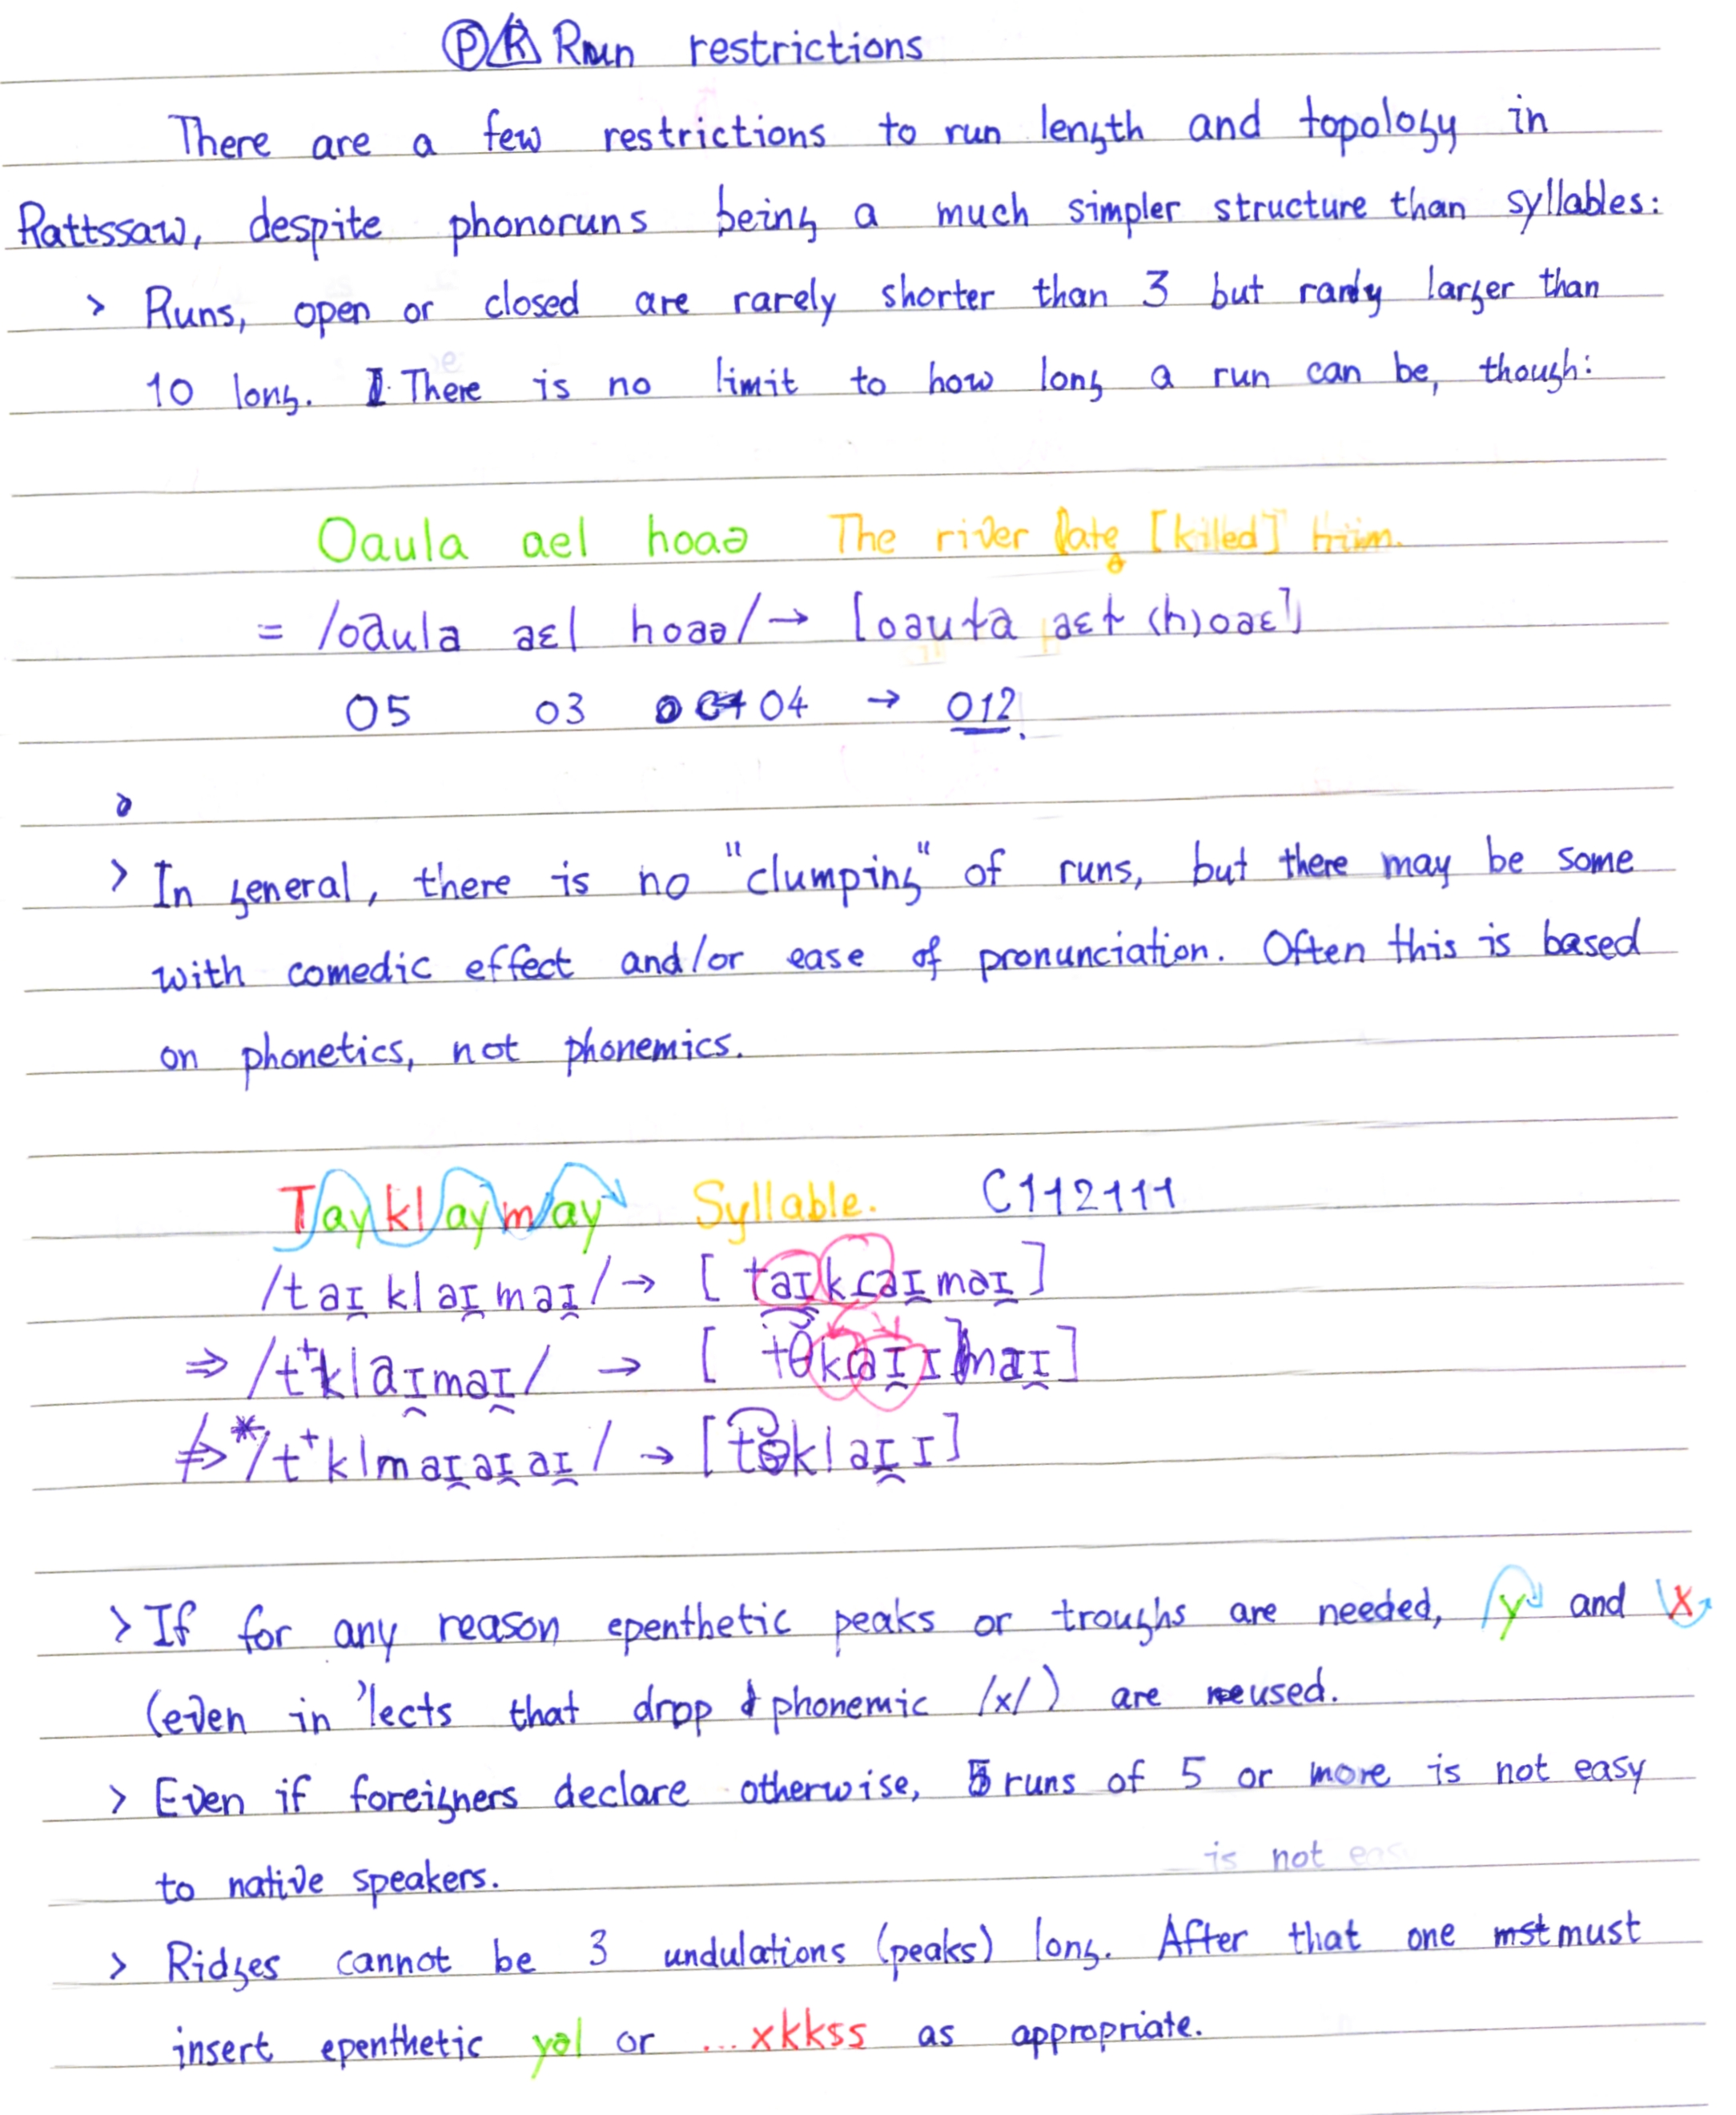 Ⓟ R Run restrictions
There are a few restrictions to run length and topology in
Rattssaw, despite phonoruns being a much simpler structure than syllables:
> Runs, open or closed are rarely shorter than 3 but rarely larger than
10 long. There is no limit to how long a run can be, though:
Oaula ael hoaə The river fate [killed] him.
= /oaula aɛl hoaə/ → [oauɫa aɛɫ (h)oaɛ]
O5 O3 O4 → O12.
> In general, there is no "clumping" of runs, but there may be some
with comedic effect and/or ease of pronunciation. Often this is based
on phonetics, not phonemics.
Tayklaymay Syllable. C112111
/taɪ̯klaɪ̯maɪ̯/ → [taɪ̯kɾaɪ̯maɪ̯]
⇒ /t⁺klaɪ̯maɪ̯/ →
⇏ */t⁺klmaɪ̯aɪ̯aɪ̯/ →
> If for any reason epenthetic peaks or troughs are needed, /y and \x
(even in 'lects that drop phonemic /x/) are used.
> Even if foreigners declare otherwise, runs of 5 or more is not easy
to native speakers.
is not eas
> Ridges cannot be 3 undulations (peaks) long. After that one must
insert epenthetic yəl or ...xkkss as appropriate.